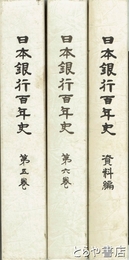 日本銀行百年史
資料編
日本銀行百年史
第六巻
日本銀行百年史
第五巻
とろや書店